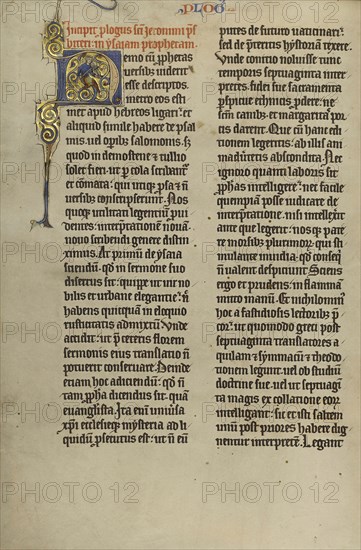 PLOG
Incipit plogus sci Jeronimi ps
biteri in ysaiam prophetam.
Nemo cum prophetas
versibus viderit
esse descriptos.
metro eos esti
met apud hebreos ligari: et
aliquid simile habere de psal
mis. vel opibus salomonis. sz
quod in demostene et tullio
solet fieri. ut p cola scribant
et comata: qui utiqz psa et n
versibus conscripserunt. Nos
quoqz utilitati legentium pui
dentes: interpretatione noua
nouo scribendi genere distin
ximus. Ac primum de ysaia
sciendum. qd in sermone suo
disertus sit: quipe ut uir no
bilis et urbane elegantie: n
habens quicquam in eloquio
rusticitatis admixtum. Unde
accidit. ut p ceteris florem
sermonis eius translatio n
potuerit conseruare. Deinde
etiam hoc adiciendum. qd n
tam propha dicendus sit. qua
euuangelista. Ita enim uniuersa
xpi ecclesieqz mysteria ad li
quidum psecutus est: ut n eum
putes de futuro uaticinari.
sed de preteritis hystoriam texere.
Unde conicio noluisse tunc
temporis septuaginta inter
pretes. fidei sue sacramenta
pspicue ethnicis pdere: ne
sem canibus. et margaritas por
cis darent. Que cum hanc edi
tionem legeritis: ab illis ani
maduertetis abscondita. Nec
ignoro quanti laboris sit
prophas intelligere: nec facile
quempiam posse iudicare de
interpretatione. nisi intellexerit
ante que legerit: nos qz pate
re morsibus plurimorum. qui sti
mulante inuidia. qd consequi
n ualent despiciunt. Sciens
ergo et prudens. in flammam
mitto manum. Et nichilominus
hoc a fastidiosis lectoribus p
cor. ut quomodo greci post
septuaginta translatores a
quilam et symmacum et theodo
tionem legunt. uel ob studium
doctrine sue. uel ut septuagin
ta magis ex collatione eorum
intelligant: sic et isti saltem
unum post priores habere dig
nentur interpretem. Legant